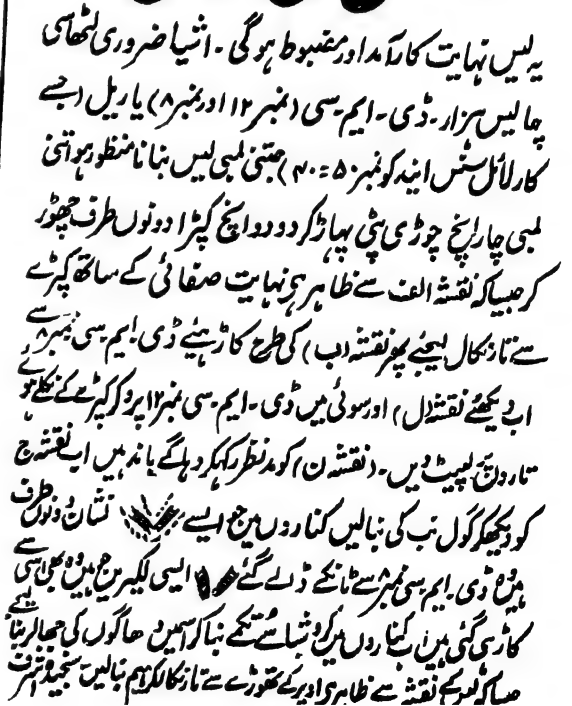 یہ لیس نہایت کارآمد اور مضبوط ہوگی ۔ اشیا ضروری لٹھا سی
چالیس ہزار ۔ ڈی ۔ ایم سی (نمبر ۱۲ اور نمبر ۸) یا ریل (جے
کارلائل سنس اینڈ کو نمبر ۵۰ = ۴۰) جتنی لمبی لیس بنانا منظور ہو اتنی
لمبی چار انچ چوڑی پٹی پہاڑ کر دو دو انچ کپڑا دونوں طرف چھوڑ
کر جیسا کہ نقشہ الف سے ظاہر ہی نہایت صفائی کے ساتھ کپڑے
سے تار نکال لیجئے پھر نقشہ (ب) کی طرح کاڑہیئے ڈی ۔ ایم سی نمبر ۸ سے
اب دیکھئے نقشہ (ل) اور سوئی میں ڈی ۔ ایم ۔ سی نمبر ۱۲ پرو کر کپڑے کے نکلے ہوئے
تاروں پر لپیٹ دیں ۔ (نقشہ ن) کو مدنظر رکہکر دہاگے باندہیں اب نقشہ ج
کو دیکھکر گول بنالیں کناروں میں جو ایسے نشان دونوں طرف
ہیں وہ ڈی ۔ ایم سی نمبر ۸ سے ٹانکے ڈالے گئے ایسی لکیریں جو ہیں وہ بھی اسی سے
کاڑہی گئی ہیں کناروں میں کروشیا سے بنا کر اسمیں دھاگوں کی جھالر بنا لیجئے
جیسا کہ نقشہ سے ظاہر ہی اوپر کے تھوڑے سے تار نکالکر ہم بنالیں